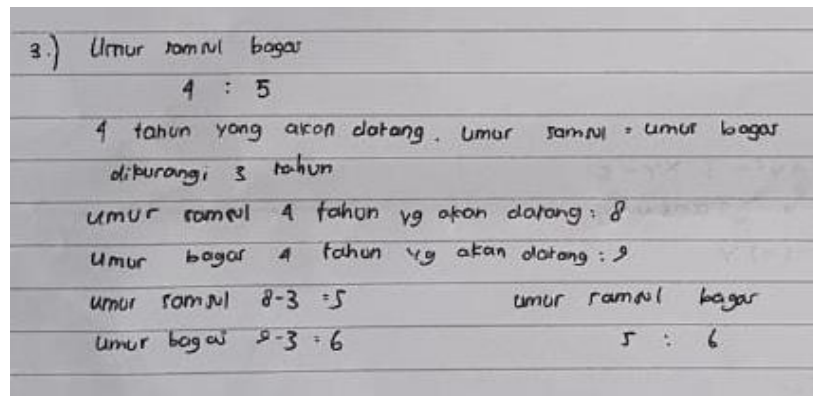 3.) Umur samsul bagas
4 : 5
4 tahun yang akan datang. umur samsul = umur bagas
dikurangi 3 tahun
umur samsul 4 tahun yg akan datang : 8
umur bagas 4 tahun yg akan datang : 9
umur samsul 8-3 = 5 umur samsul bagas
umur bagas 9-3 = 6 5 : 6